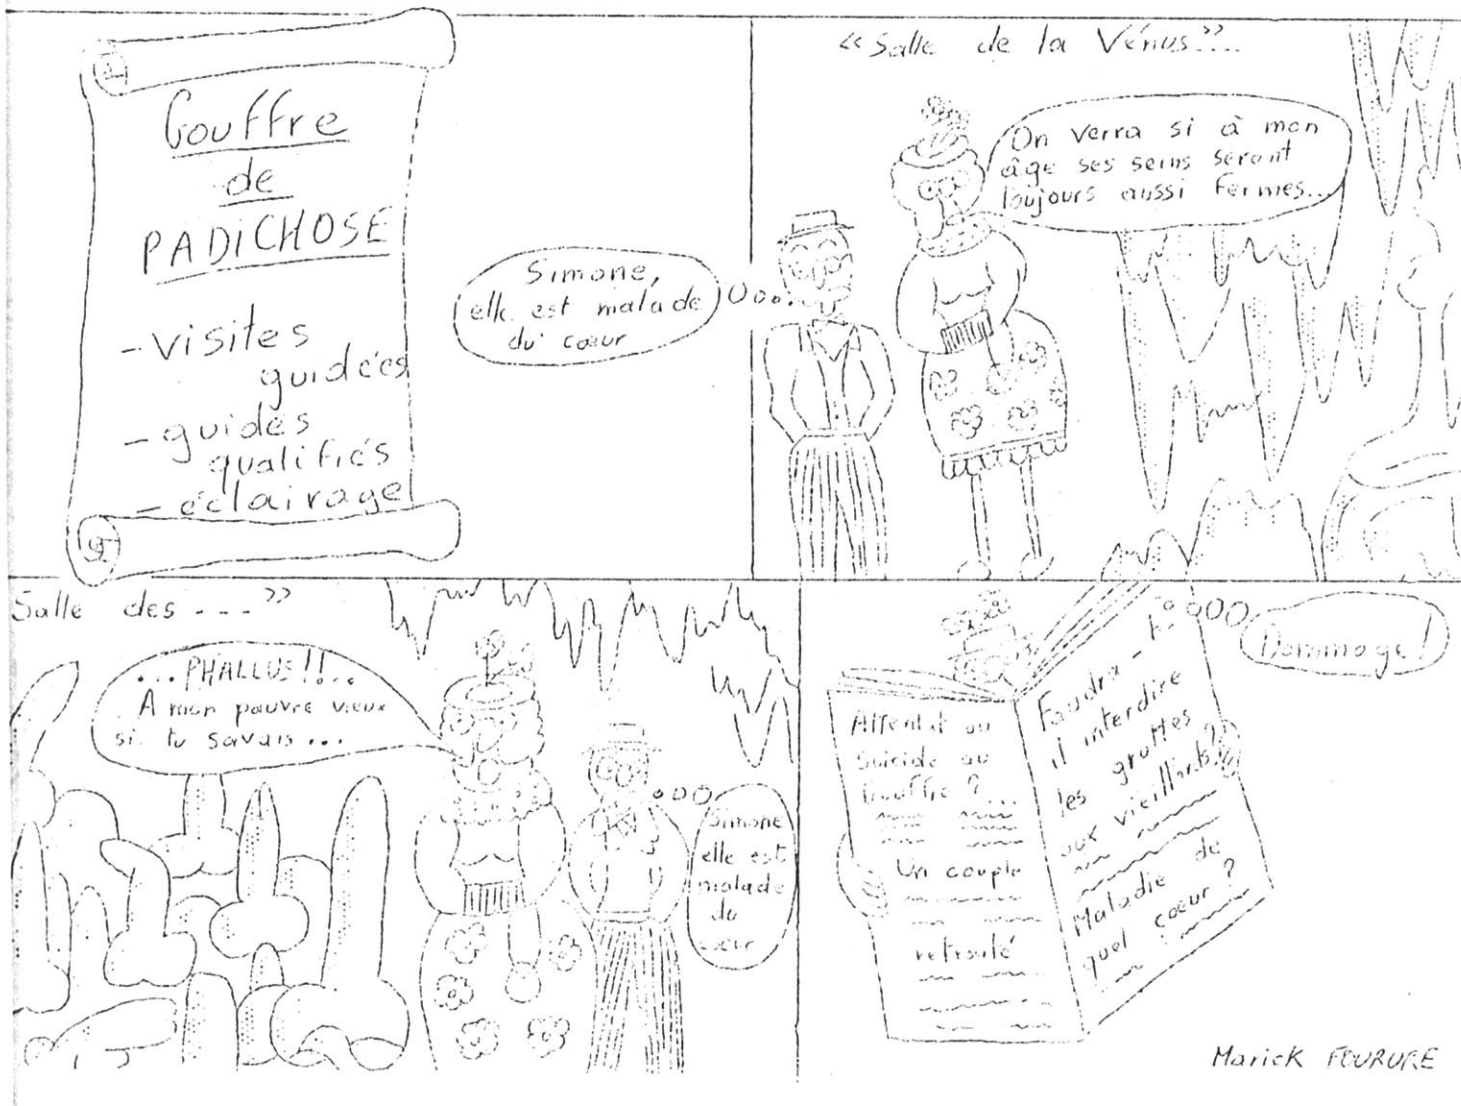 Gouffre
de
PADICHOSE
- visites
guidées
- guides
qualifiés
- éclairage
Simone,
elle est malade
du cœur
« Salle de la Vénus »...
On verra si à mon
âge ses seins seront
toujours aussi fermes...
Salle des ... »
... PHALLUS!!..
A mon pauvre vieux
si tu savais ...
Simone
elle est
malade
du
cœur
Attentat ou
Suicide au
Gouffre ?
Un couple
retrouvé
Faudra-t-
il interdire
les grottes
aux vieillards?
Maladie de
quel cœur ?
Dommage !
Marick FOURURE